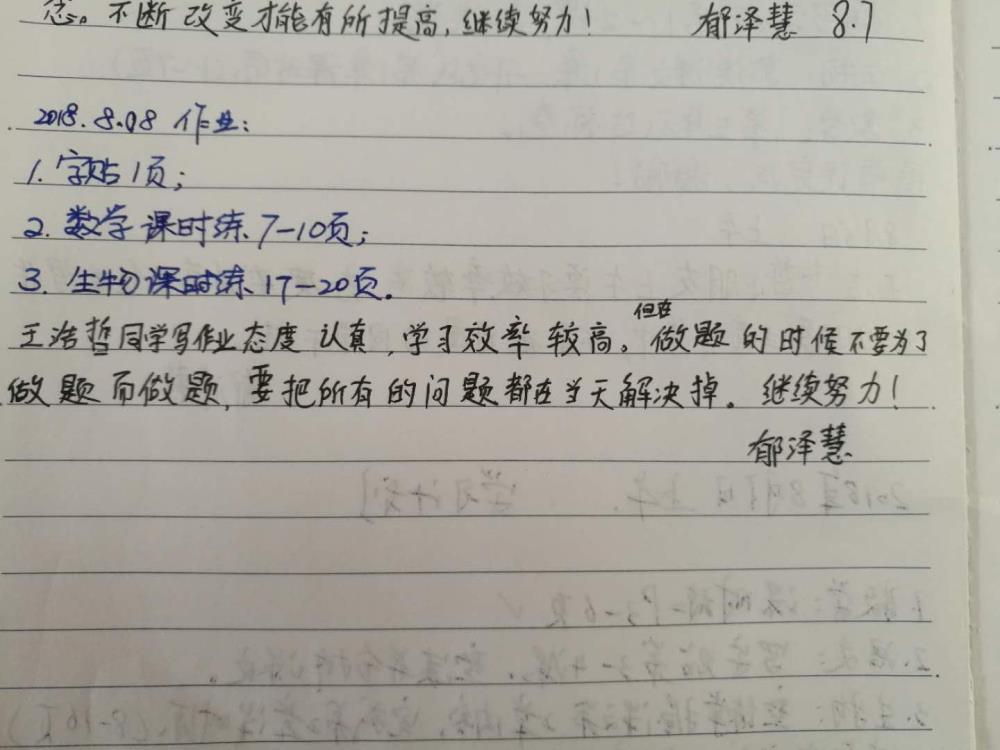 意。不断改变才能有所提高,继续努力! 郁泽慧 8.7
2018.8.08 作业:
1. 字贴1页;
2. 数学课时练7-10页;
3. 生物课时练17-20页。
王浩哲同学写作业态度认真,学习效率较高。但在做题的时候不要为了
做题而做题,要把所有的问题都在当天解决掉。继续努力!
郁泽慧